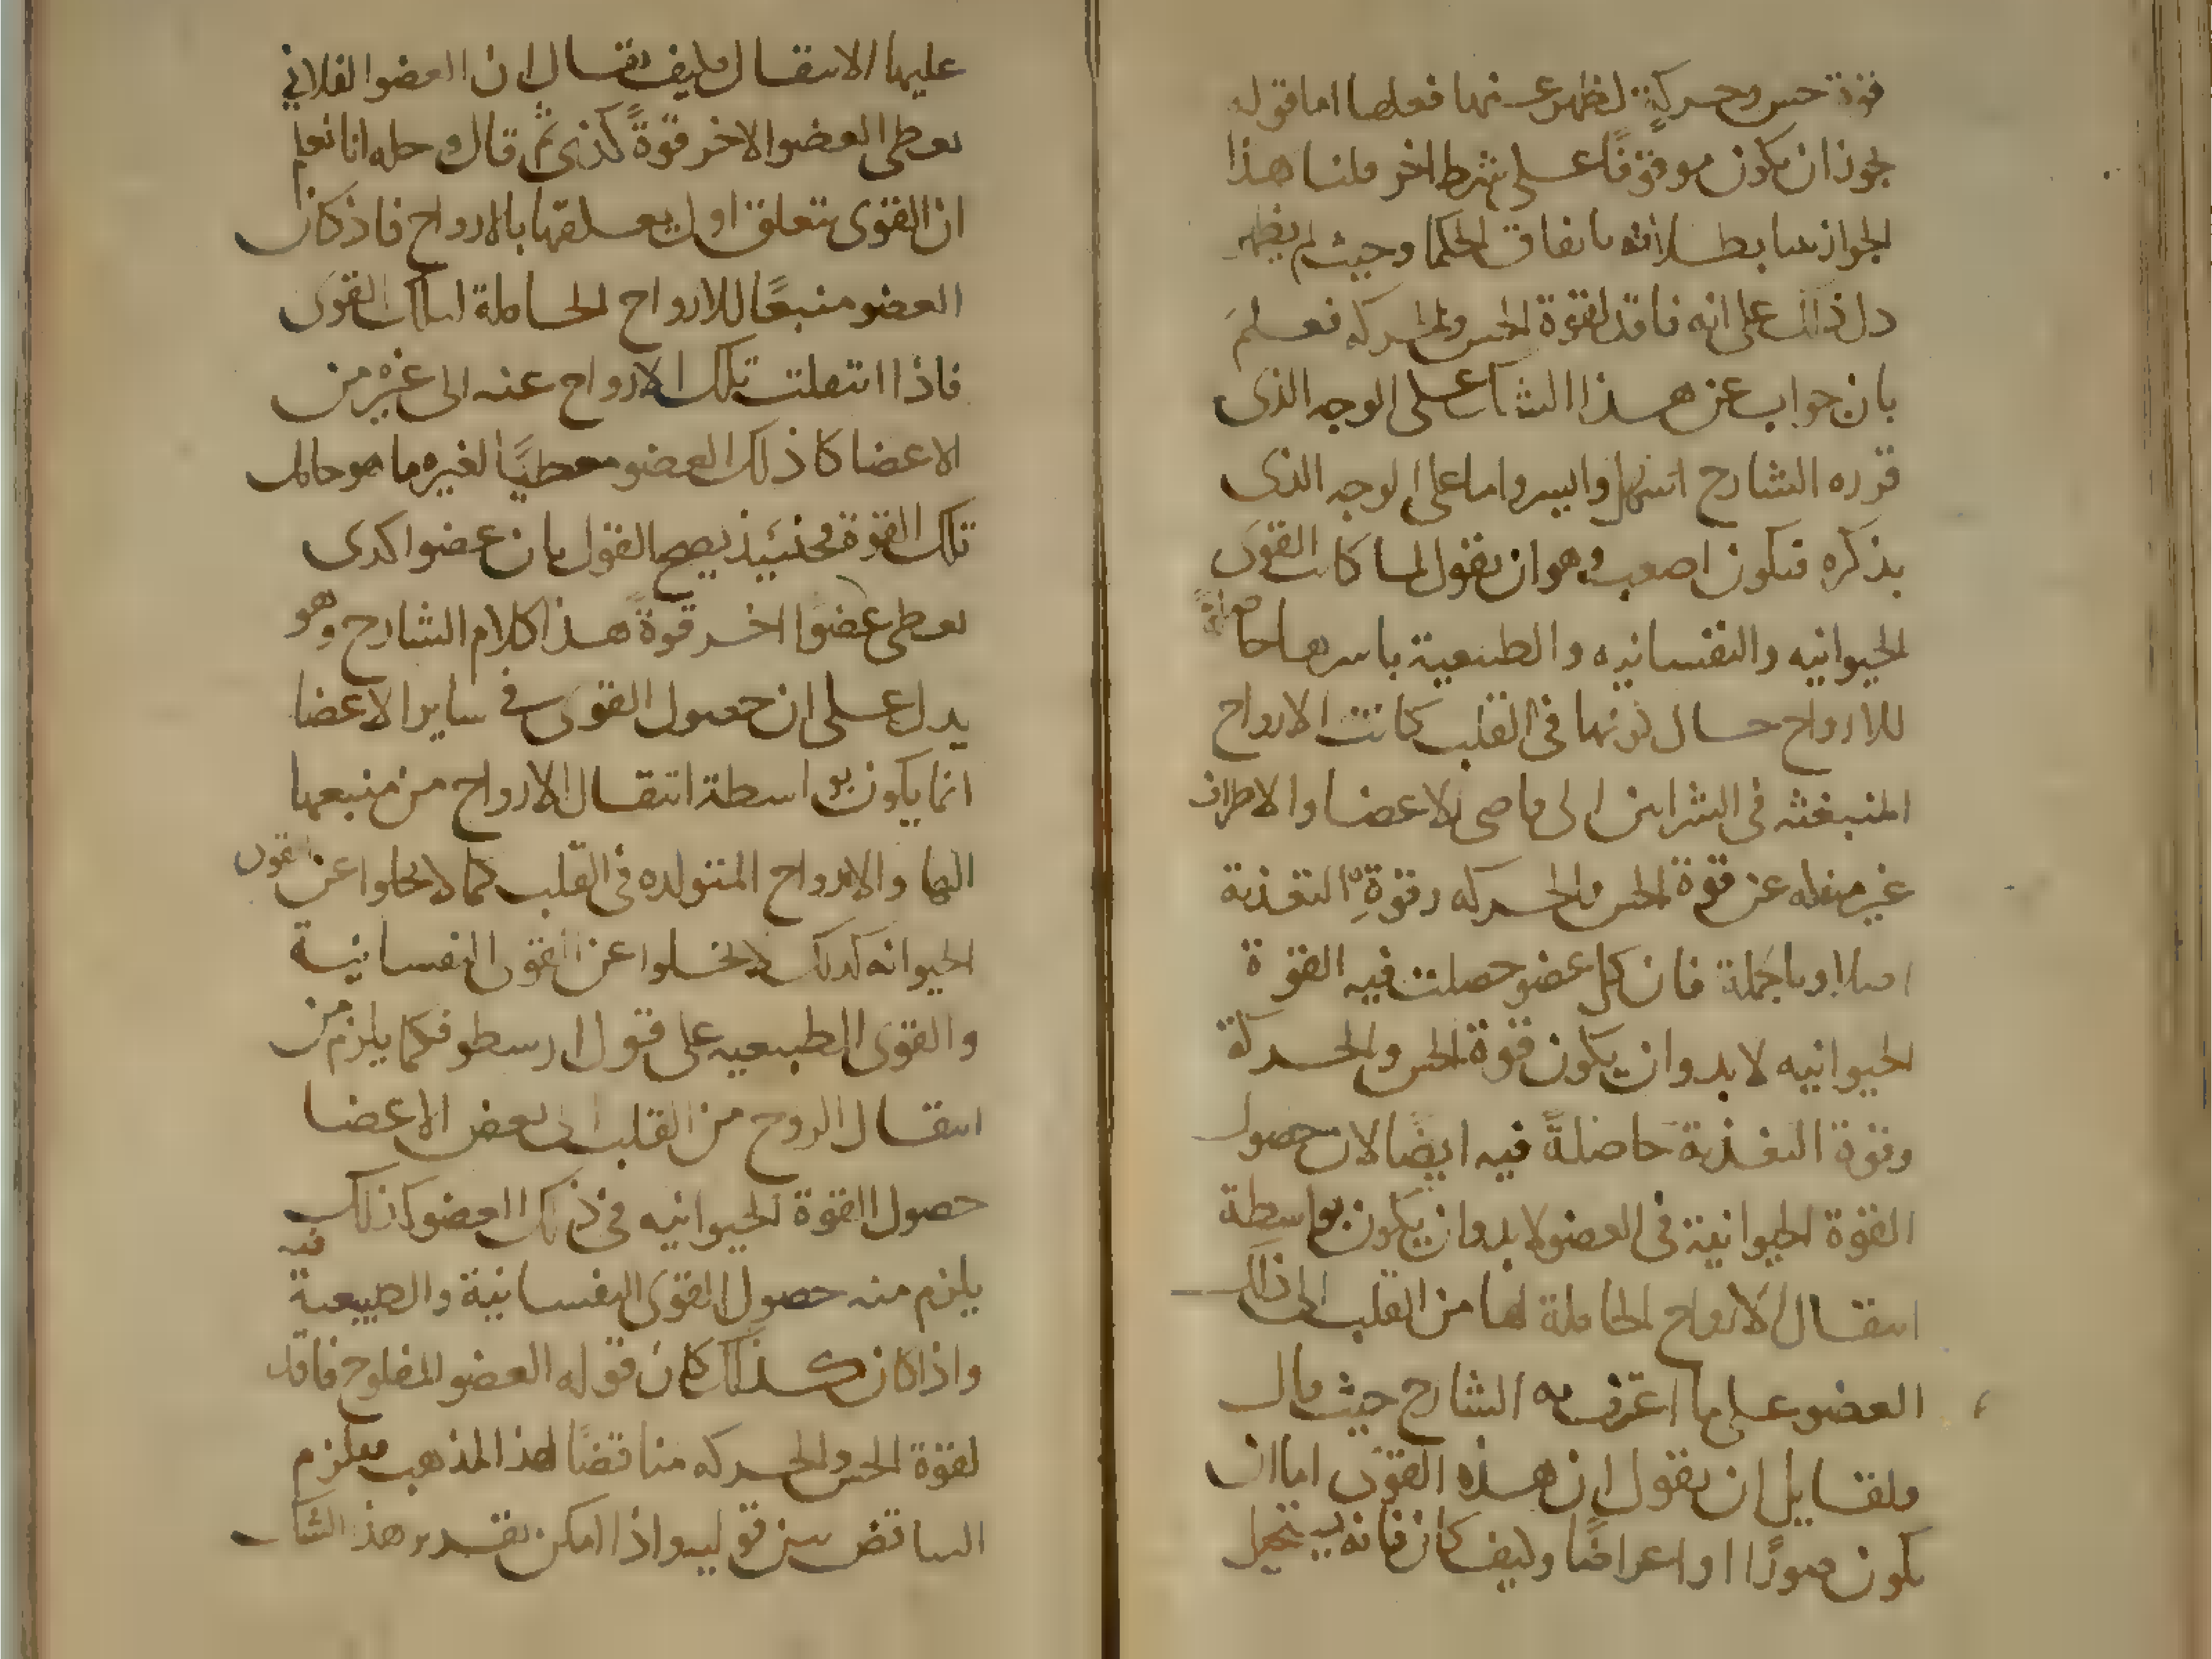 قوة حس وحركة لظهر عنهما فعلهما اما قوله
يجوز ان يكون موقوفًا على شرط اخر قلنا هذا
الجواز بينا بطلانه باتفاق الحكما وحيث لم يظهر
دل ذلك على انه فاقد لقوة الحس والحركه فعلم
بان جواب عن هذا الشك على الوجه الذى
قرره الشارح اسهل وايسر واما على الوجه الذى
نذكره فيكون اصعب وهو ان يقول لما كانت القوى
الحيوانيه والنفسانيه والطبيعية باسرها حاصلة
للارواح حال كونها فى القلب كانت الارواح
المنبعثه فى الشراين الى اقاصى الاعضا والاطراف
غير منفكه عن قوة الحس والحركه وقوة التغذية
اصلا وبالجملة فان كل عضو حصلت فيه القوة
الحيوانيه لا بد وان يكون قوة الحس والحركة
وقوة التغذية حاصلةً فيه ايضًا لان حصول
القوة الحيوانية فى العضو لا بد وان يكون بواسطة
انتقال الارواح الحاملة لها من القلب الى ذلك
العضو على ما اعترف به الشارح حيث قال
ولقايل ان يقول ان هذه القوى اما ان
يكون صورًا او اعراضًا وكيف كان فانه يستحيل
عليها الانتقال فكيف يقال ان العضو الفلاني
يعطى العضو الاخر قوةً كذى ثم قال وحله انا نعلم
ان القوى يتعلق اول تعلقها بالارواح فاذ كان
العضو منبعًا للارواح الحاملة لتلك القوى
فاذا انتقلت تلك الارواح عنه الى غيره من
الاعضا كا ذلك العضو معطيًا لغيره ما هو حامل
تلك القوة فحينئيذ يصح القول بان عضوا كدى
يعطى عضوًا اخر قوةً هذا كلام الشارح وهو
يدل على ان حصول القوى فى ساير الاعضا
انما يكون بواسطة انتقال الارواح من منبعها
اليها والارواح المتولده فى القلب كما لا يخلوا عن القوى
الحيوانه كدلك لا يخلوا عن القوى النفسانية
والقوى الطبيعيه على قول ارسطو فكما يلزم من
انتقال الروح من القلب الى بعض الاعضا
حصول القوة الحيوانيه فى ذلك العضو كذلك
يلزم منه حصول القوى النفسانية والطبيعية فيه
واذا كان كذلك كان قوله العضو المفلوج فاقد
لقوة الحس والحركه مناقضًا لهذا المذهب فيلزم
التناقض بين قوليه واذا امكن تقدير هذ الشك